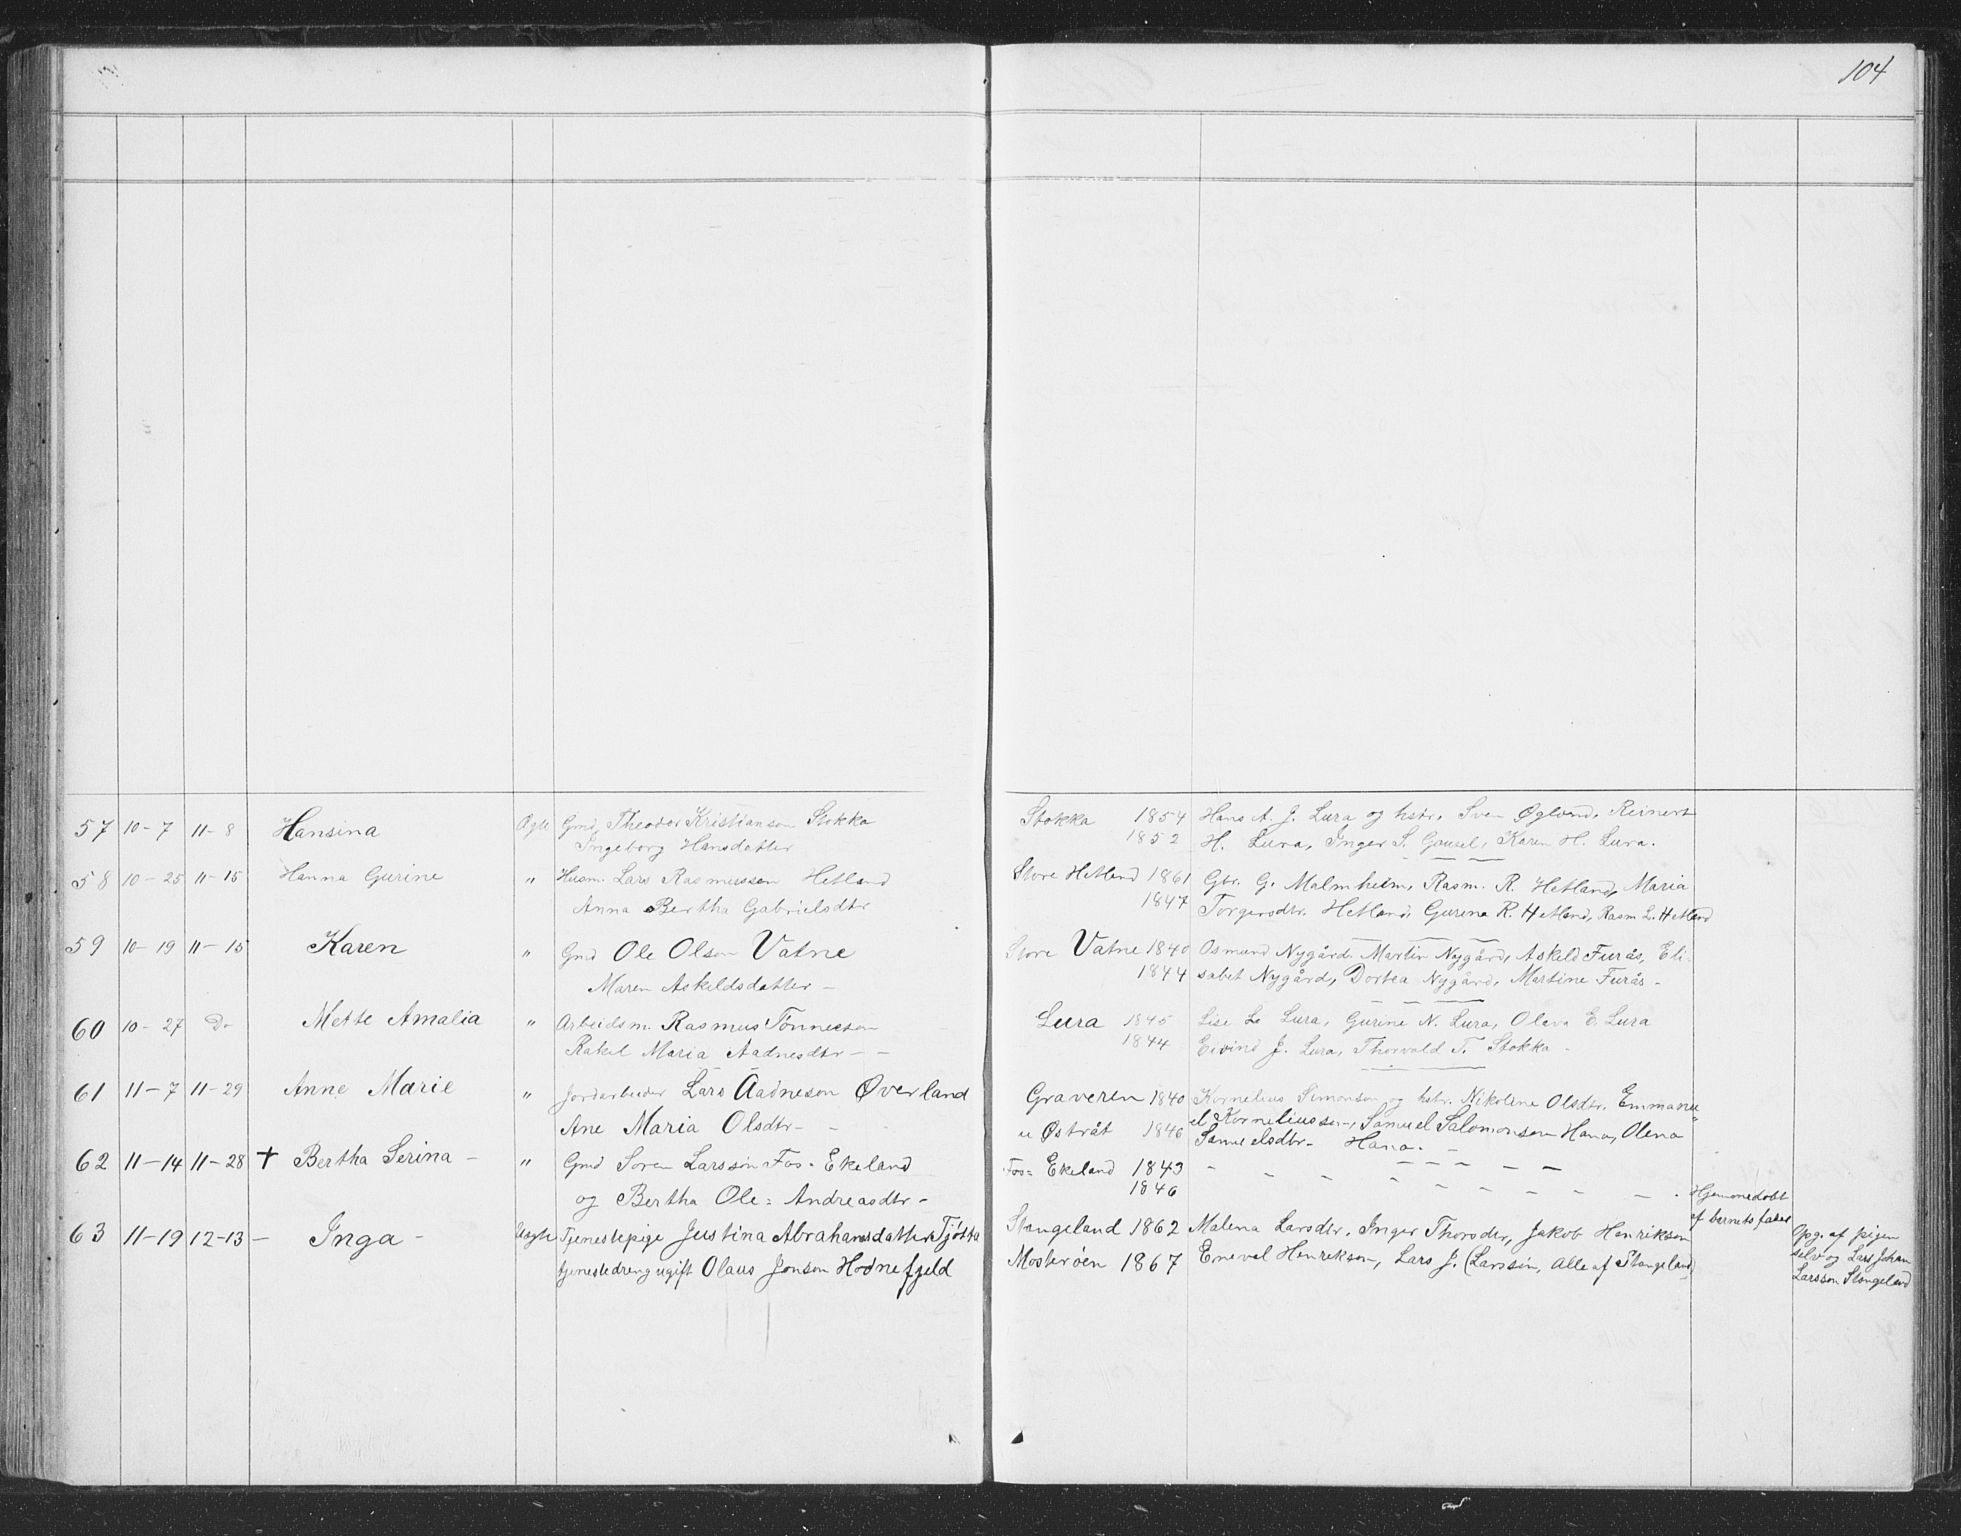 104
57 10-7 11-8 Hansina Ægte Gmd Theodor Kristianson Stokka Stokka 1854 Hans A. J. Lura og hstr. Sven Øglænd. Reinert
Ingeborg Hansdatter 1852 H. Lura, Inger S. Gausel, Karen H. Lura.
58 10-25 11-15 Hanna Gurine " Husm. Lars Rasmussen Hetland Store Hetland 1861 Gbr. G. Malmheim, Rasm. R. Hetland, Maria
Anna Bertha Gabrielsdtr 1847 Torgersdtr. Hetland, Gurina R. Hetland, Rasm L. Hetland
59 10-19 11-15 Karen " Gmd Ole Olson Vatne Store Vatne 1840 Osmund Nygård. Martin Nygård, Askild Furås, Eli-
Maren Askildsdatter - 1844 sabet Nygård, Dortea Nygård, Martine Furås -
60 10-27 Do Mette Amalia " Arbeidsm. Rasmus Tønneson Lura 1845 Lise L. Lura, Gurine N. Lura, Oleva E. Lura
Rakel Maria Aadnesdtr - - 1844 Eivind J. Lura, Thorvald T. Stokka -
61 11-7 11-29 Anne Marie " Jordarbeider Lars Aadneson Øverland Graveren 1840 Kornelius Simonson og hstr. Nikoline Olsdtr. Emmanu
Ane Maria Olsdtr - - u Østråt 1846 el Korneliusson, Samuel Salomonsen Hana, Olena
Samuelsdtr - Hana. -
62 11-14 11-28 + Bertha Serina - " Gmd Soren Larsson Fos-Ekeland Fos-Ekeland 1843 - - - - -
og Bertha Ole-Andreasdtr - 1846 - - - - - - Hjemmedøbt
af barnets fader
63 11-19 12-13 - Inga - Uægte Tjenestepige Justina Abrahamsdatter Tjøtta Stangeland 1862 Malena Larsdtr, Inger Thorsdtr, Jakob Henrikson Opg. af pigen
tjenestedreng ugift Olaus Jonson Hodnefjeld Mosterøen 1867 Eneval Henrikson, Lars J. (Larssøn, Alle af Stangeland) selv og Lars Johan
Larsson Stangeland